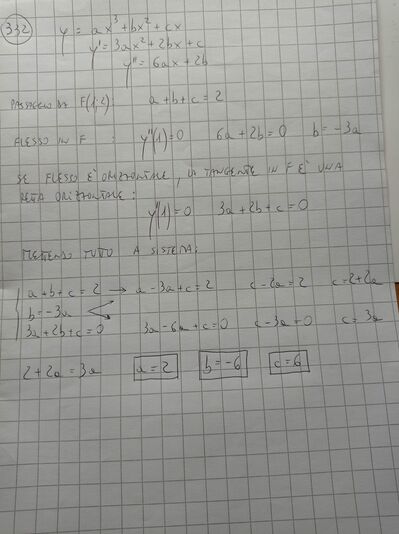 332 y = ax³ + bx² + cx
y' = 3ax² + 2bx + c
y'' = 6ax + 2b
PASSAGGIO DA F(1;2): a + b + c = 2
FLESSO IN F : y''(1) = 0 6a + 2b = 0 b = -3a
SE FLESSO E' ORIZZONTALE, LA TANGENTE IN F E' UNA
RETA ORIZZONTALE:
y'(1) = 0 3a + 2b + c = 0
METTENDO TUTTO A SISTEMA:
a + b + c = 2 → a - 3a + c = 2 c - 2a = 2 c = 2 + 2a
b = -3a
3a + 2b + c = 0 3a - 6a + c = 0 c - 3a = 0 c = 3a
2 + 2a = 3a a = 2 b = -6 c = 6